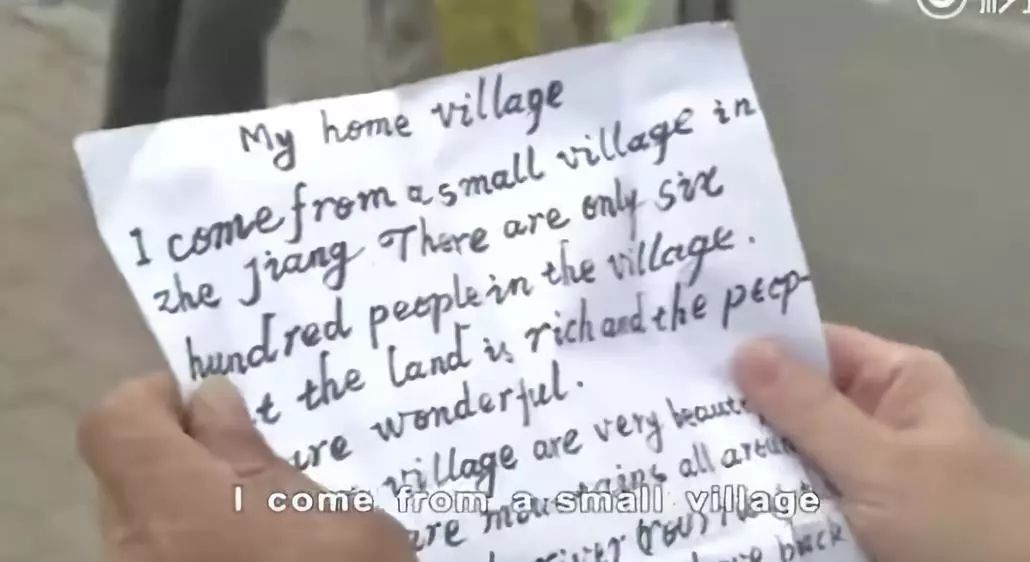 My home village
I come from a small village in
zhe jiang There are only six
hundred people in the village.
the land is rich and the peop-
wonderful.
village are very
are mountains all
river
back
I come from a small village